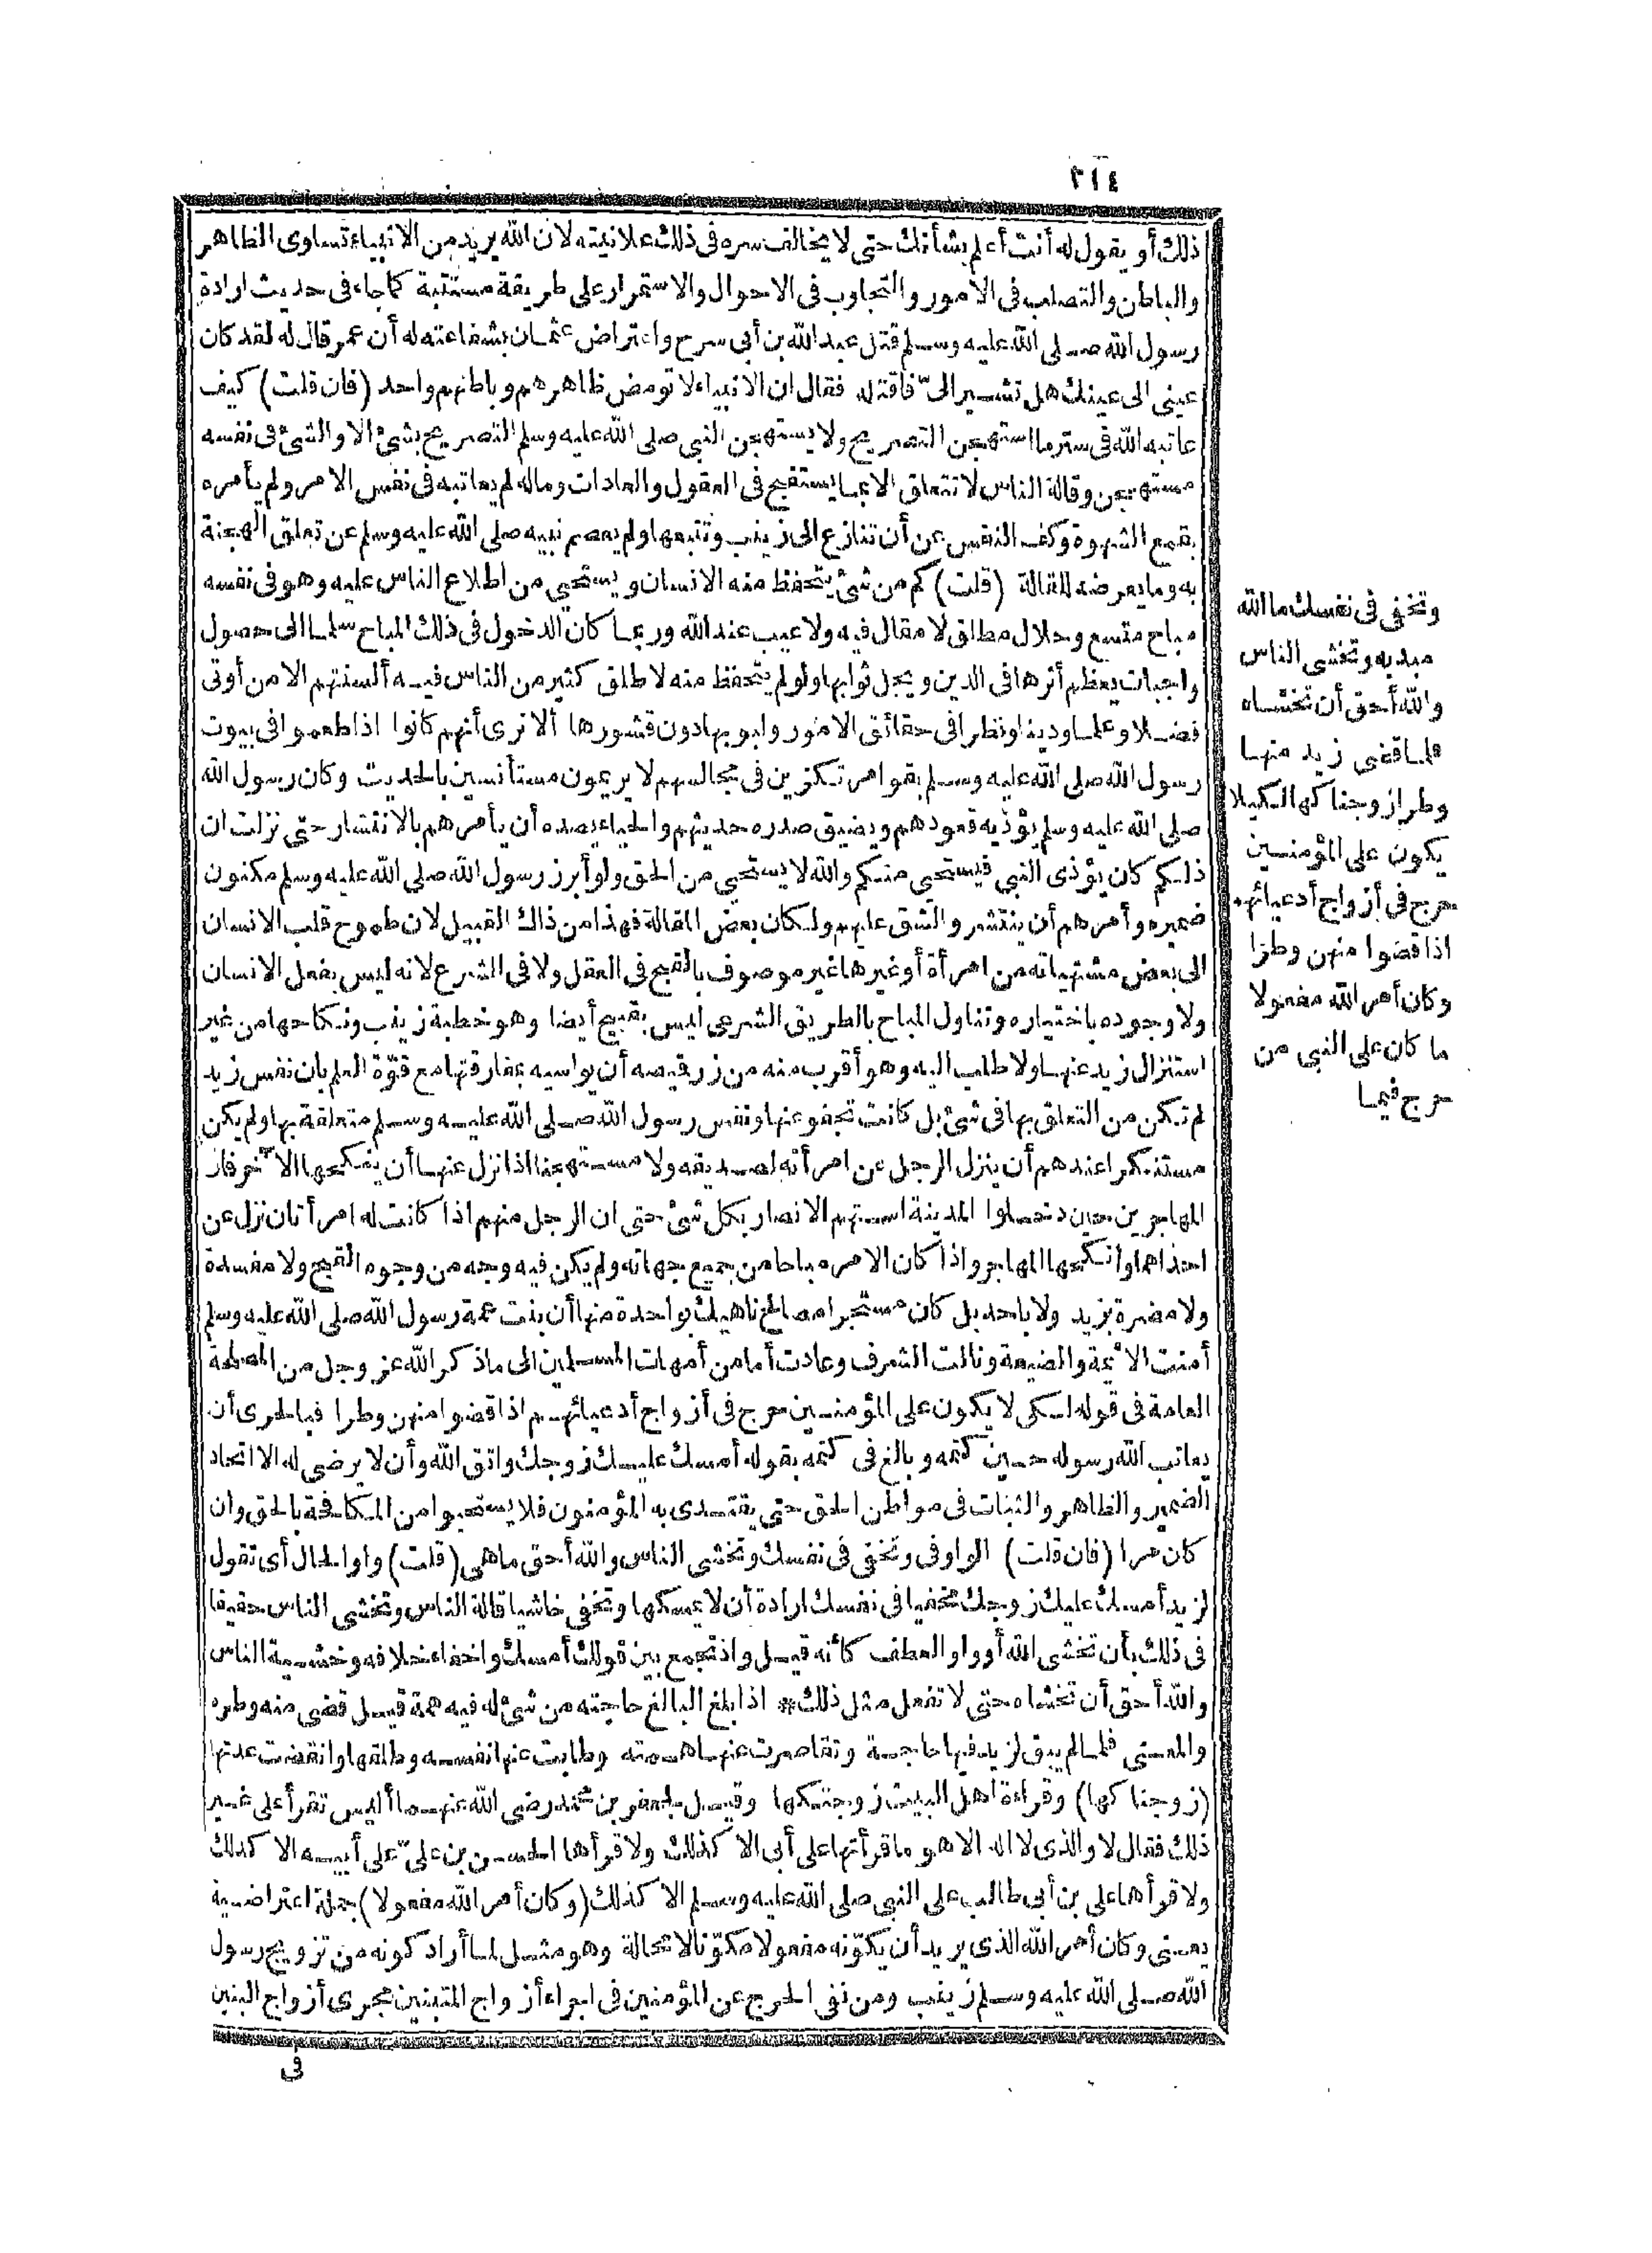 ٣١٤
ذلك أو يقول له أنت أعلم بشأنك حتى لا يخالف سره فى ذلك علانيته لان الله يريد من الانبياء تساوى الظاهر
والباطن والتصلب فى الامور والتجاوب فى الاحوال والاستمرار على طريقة مستتبة كما جاء فى حديث ارادة
رسول الله صلى الله عليه وسلم قتل عبد الله بن أبى سرح واعتراض عثمان بشفاعته له أن عمر قال له لقد كان
عينى الى عينك هل تشير الىّ فاقتله فقال ان الانبياء لا تومض ظاهرهم وباطنهم واحد (فان قلت) كيف
عاتبه الله فى ستر ما استهجن التصريح ولا يستهجن النبى صلى الله عليه وسلم التصريح بشئ الا والشئ فى نفسه
مستهجن وقالة الناس لا تتعلق الا بما يستقبح فى العقول والعادات وماله لم يعاتبه فى نفس الامر ولم يأمره
بقمع الشهوة وكف النفس عن أن تنازع الى زينب وتتبعها ولم يعصم نبيه صلى الله عليه وسلم عن تعلق الهجنة
به وما يعرضه للقالة (قلت) كم من شئ يتحفظ منه الانسان ويستحيى من اطلاع الناس عليه وهو فى نفسه
مباح متسع وحلال مطلق لا مقال فيه ولا عيب عند الله وربما كان الدخول فى ذلك المباح سلما الى حصول
واجبات يعظم أثرها فى الدين ويجل ثوابها ولو لم يتحفظ منه لاطلق كثير من الناس فيه ألسنتهم الا من أوتى
فضلا وعلما ودينا ونظرا فى حقائق الامور ولبوبها دون قشورها ألا ترى أنهم كانوا اذا طعموا فى بيوت
رسول الله صلى الله عليه وسلم بقوا مرتكزين فى مجالسهم لا يريمون مستأنسين بالحديث وكان رسول الله
صلى الله عليه وسلم يؤذيه قعودهم ويضيق صدره حديثهم والحياء يصده أن يأمرهم بالانتشار حتى نزلت ان
ذلكم كان يؤذى النبى فيستحيى منكم والله لا يستحيى من الحق ولو أبرز رسول الله صلى الله عليه وسلم مكنون
ضميره وأمرهم أن ينتشروا لشق عليهم ولكان بعض المقالة فهذا من ذاك القبيل لان طموح قلب الانسان
الى بعض مشتهياته من امرأة أو غيرها غير موصوف بالقبح فى العقل ولا فى الشرع لانه ليس بفعل الانسان
ولا وجوده باختياره وتناول المباح بالطريق الشرعى ليس بقبيح أيضا وهو خطبة زينب ونكاحها من غير
استنزال زيد عنها ولا طلب اليه وهو أقرب منه من زر قيصه أن يواسيه بمفارقتها مع قوّة العلم بان نفس زيد
لم تكن من التعلق بها فى شئ بل كانت تجفو عنها ونفس رسول الله صلى الله عليه وسلم متعلقة بها ولم يكن
مستنكرا عندهم أن ينزل الرجل عن امرأته لصديقه ولا مستهجنا اذا نزل عنها أن ينكحها الآخر فان
المهاجرين حين دخلوا المدينة استهم الانصار بكل شئ حتى ان الرجل منهم اذا كانت له امرأتان نزل عن
احداهما وأنكحها المهاجر واذا كان الامر مباحا من جميع جهاته ولم يكن فيه وجه من وجوه القبح ولا مفسدة
ولا مضرة بزيد ولا باحد بل كان مستجرا مصالح ناهيك بواحدة منها أن بنت عمة رسول الله صلى الله عليه وسلم
أمنت الائمة والضيعة ونالت الشرف وعادت أما من أمهات المسلمين الى ما ذكر الله عز وجل من المصلحة
العامة فى قوله لكى لا يكون على المؤمنين حرج فى أزواج أدعيائهم اذا قضوا منهن وطرا فبالحرى أن
يعاتب الله رسوله حين كتمه وبالغ فى كتمه بقوله أمسك عليك زوجك واتق الله وأن لا يرضى له الا اتحاد
الضمير والظاهر والثبات فى مواطن الحق حتى يقتدى به المؤمنون فلا يستحيوا من المكافحة بالحق وان
كان مرا (فان قلت) الواو فى وتخفى فى نفسك وتخشى الناس والله أحق ما هى (قلت) واو الحال أى تقول
لزيد أمسك عليك زوجك مخفيا فى نفسك ارادة أن لا يمسكها وتخفى خاشيا قالة الناس وتخشى الناس حقيقا
فى ذلك بأن تخشى الله أو واو العطف كأنه قيل واذ تجمع بين قولك أمسك واخفاء خلافه وخشية الناس
والله أحق أن تخشاه حتى لا تفعل مثل ذلك * اذا بلغ البالغ حاجته من شئ له فيه همة قيل قضى منه وطره
والمعنى فلما لم يبق لزيد فيها حاجة وتقاصرت عنها همته وطابت عنها نفسه وطلقها وانقضت عدتها
(زوجناكها) وقراءة أهل البيت زوجتكها وقيل لجعفر بن محمد رضى الله عنهما أليس تقرأ على غير
ذلك فقال لا والذى لا اله الا هو ما قرأتها على أبى الا كذلك ولا قرأها الحسن بن علىّ على أبيه الا كذلك
ولا قرأها على بن أبى طالب على النبى صلى الله عليه وسلم الا كذلك (وكان أمر الله مفعولا) جملة اعتراضية
يعنى وكان أمر الله الذى يريد أن يكوّنه مفعولا مكوّنا لا محالة وهو مثل لما أراد كونه من تزويج رسول
الله صلى الله عليه وسلم زينب ومن نفى الحرج عن المؤمنين فى اجراء أزواج المتبنين مجرى أزواج البنين
فى
وتخفى فى نفسك ما الله
مبديه وتخشى الناس
والله أحق أن تخشاه
فلما قضى زيد منها
وطرا زوجناكها لكيلا
يكون على المؤمنين
حرج فى أزواج أدعيائهم
اذا قضوا منهن وطرا
وكان أمر الله مفعولا
ما كان على النبى من
حرج فيما